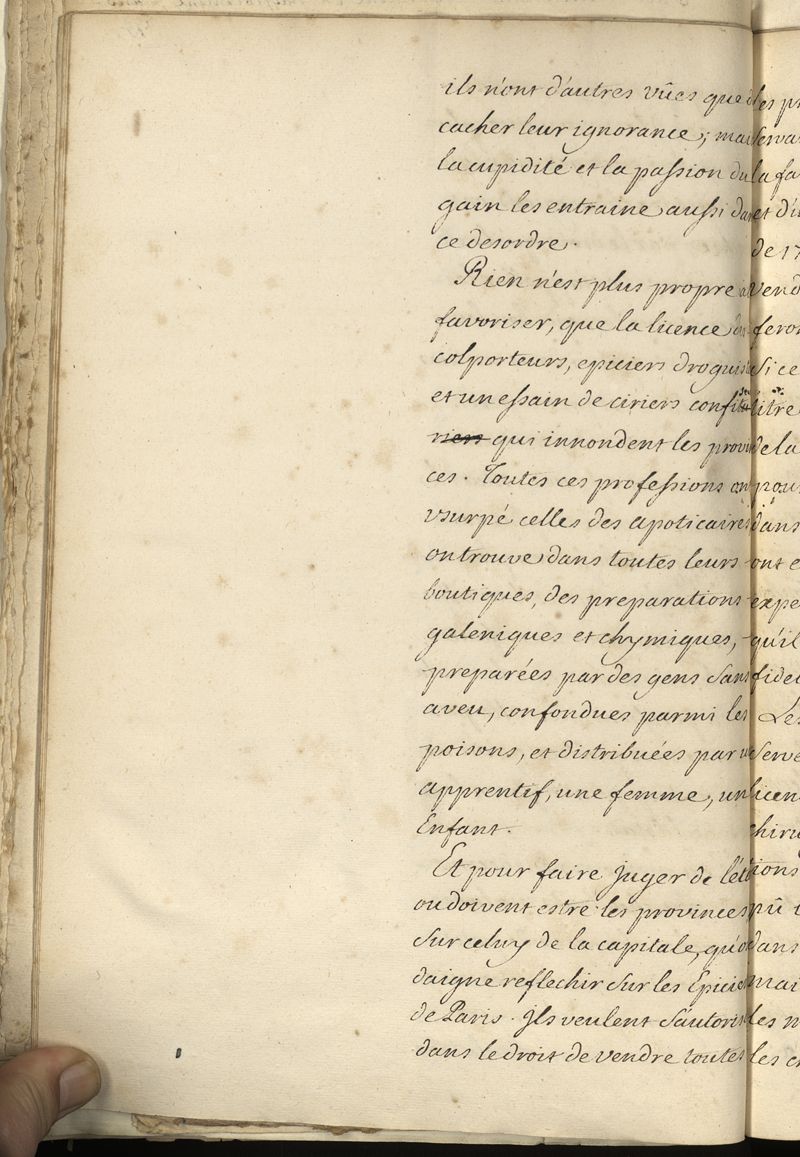 ils n'ont d'autres vûes que d
cacher leur ignorance; mai
la cupidité et la passion du
gain les entraine aussi da
ce desordre.
Rien n'est plus propre a
favoriser, que la licence
colporteurs, epiciers droguis
et un essain de ciriers confitu
riers qui innondent les provin
ces. Toutes ces professions on
vsurpé celles des apoticaires
on trouve dans toutes leurs
boutiques, des preparations
galeniques et chymiques,
preparées par des gens sans
aveu, confondues parmi les
poisons, et distribuées par u
apprentif, une femme, un
Enfant.
Et pour faire juger de l'ét
ou doivent estre les provinces
sur celuy de la capitale, qu'o
daigne reflechir sur les Epicie
de Paris. Ils veulent s'autoris
dans le droit de vendre toutes
les pr
serva
la fa
et d'u
de 17
vend
feron
si ce
titre
de la
pour
dans
ont e
expe
qu'il
fidel
Les
serve
licen
chiru
ions
pû
dans
mai
les m
les c